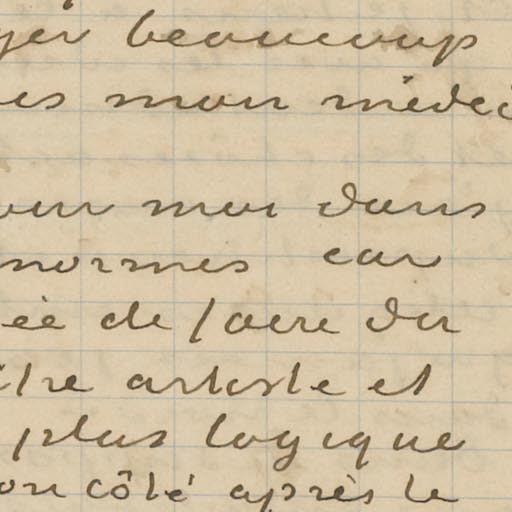 yer beaucoup
es mon médec
our moi dans
normes car
ée de faire du
être artiste et
plus logique
on côté après le